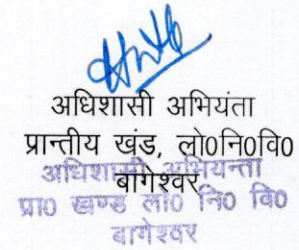 अधिशासी अभियंता
प्रान्तीय खंड, लो0नि0वि0
बागेश्वर
अधिशासी अभियन्ता
प्रा0 खण्ड लो0 नि0 वि0
बागेश्वर